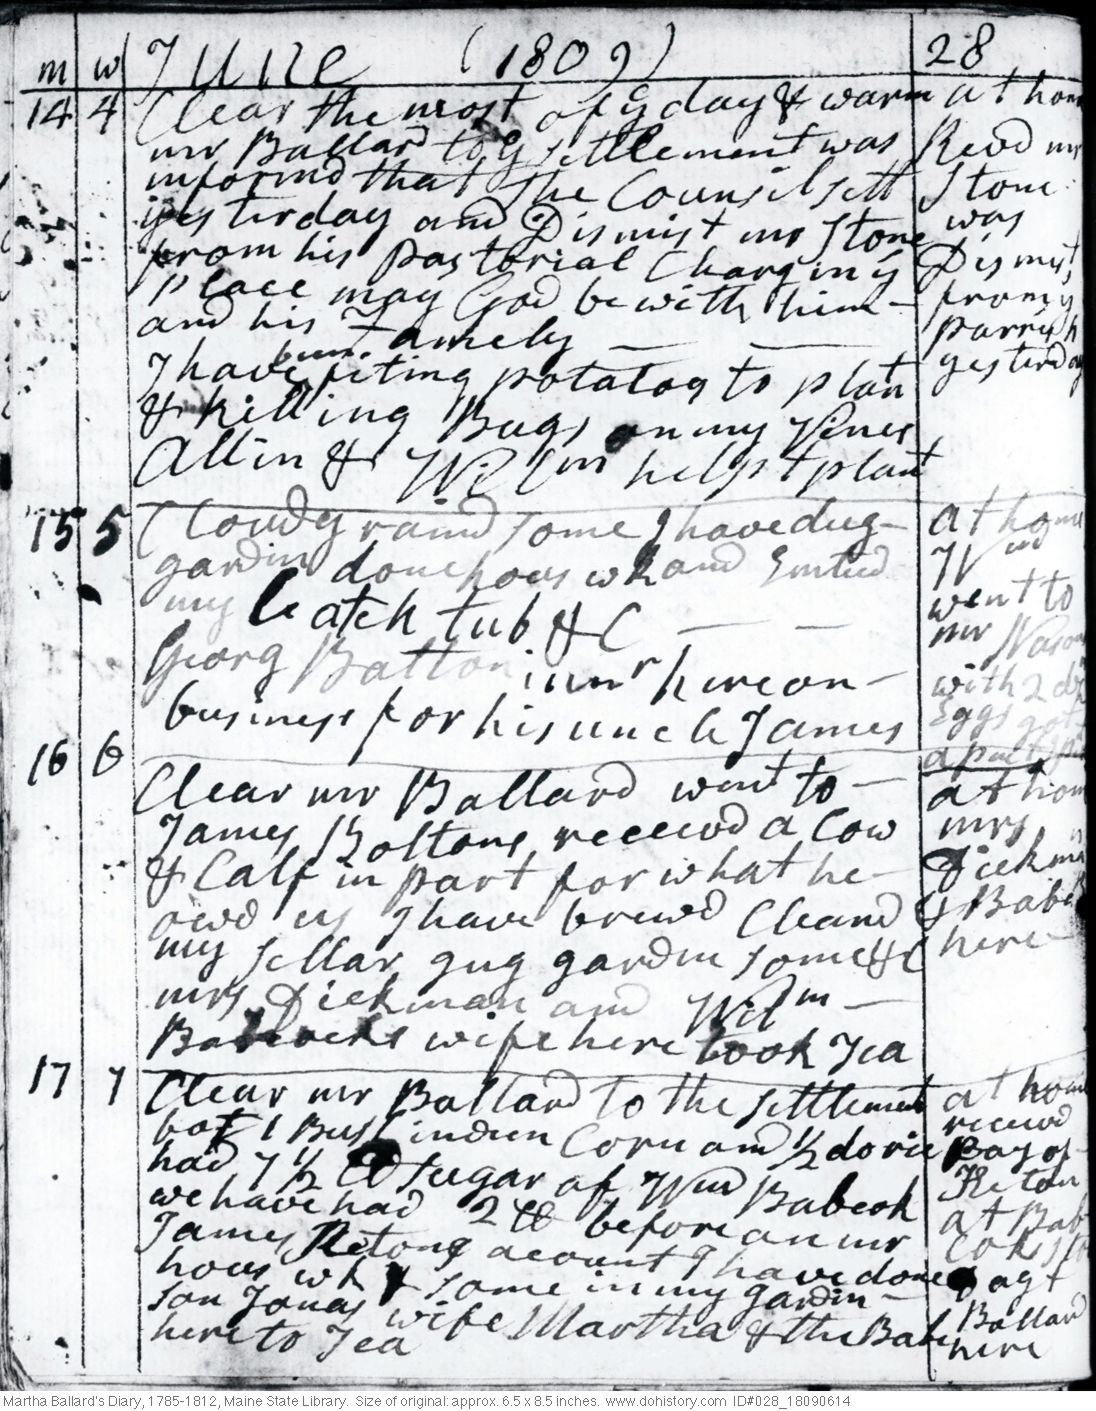 m w June (1809) 28
14 4 Clear the most of ye day & warm
mr Ballard to ye settlement was
informd that the Counsil sett
yesterday and Dismist mr Stone
from his Pastorial Charg in ys
Place may God be with him –
and his Famely — —
been
I have seting potatoes to plan
& killing Bugs on my Vines
Allin & Wilm helpt plant
at hom
Recvd mr
Stone
was
Dismist
from ye
parrish
yesterday
15 5 Cloudy raind some I have dug –
gardin done hous wk and Emtied
my leatch tub &C — —
Georg Batton in here on –
business for his uncle James
at home
Wm
went to
mr Nason
with 2 dz
Eggs got
16 6 Clear mr Ballard went to –
James Boltons receivd a Cow
& Calf in part for what he –
owd us I have brewd Cleand
my sellar gug gardin some &C
mrs Dickman and Wilm –
Babcocks wife here took Tea
at hom
mrs
Dickman
& Babcok
here –
17 7 Clear mr Ballard to the settlement
bot 1 Bush indien Corn and ½
had 7 ½ lb sugar of Wm Babcok
we have had 2 lb before on mr
James acount I have done
hous wk & some in my gardin –
son Jonas wife Martha & the Babe
here to Tea
at home
receivd
Pay of
at Bab
coks sto
agt
Ballard
here
Martha Ballard's Diary, 1785-1812, Maine State Library. Size of original: approx. 6.5 x 8.5 inches. www.dohistory.com ID#028_18090614